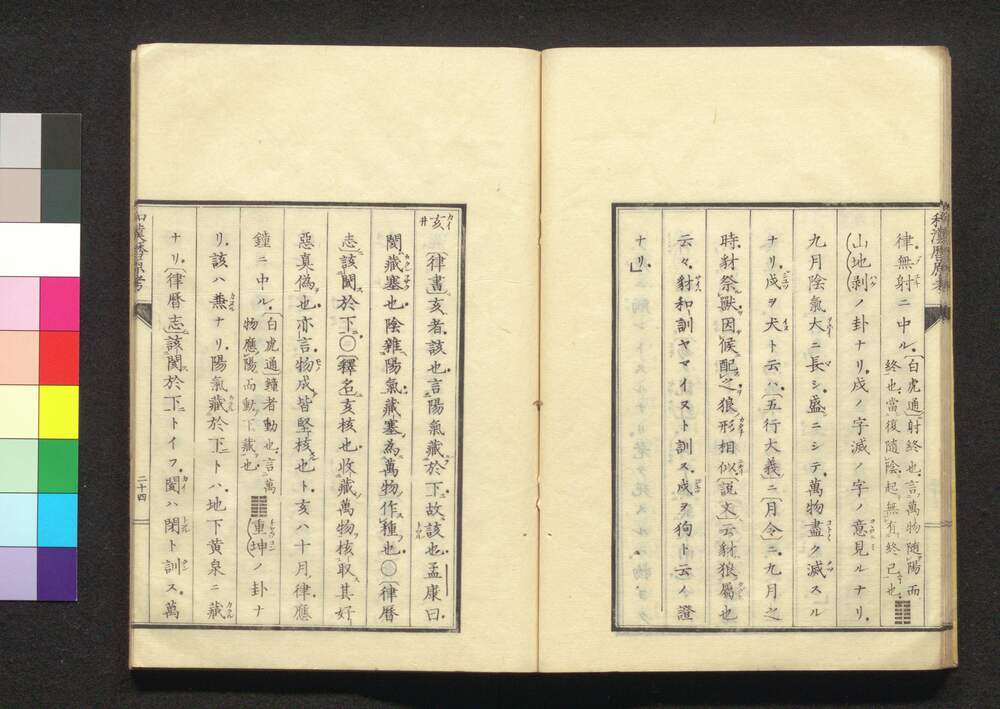 律無射ニ中ル。白虎通射終也言萬物隨陽而
終也當復隨陰起無有終已也
山地剥ノ卦ナリ戌ノ字滅ノ字ノ意見ルナリ。
九月陰氣大ニ長シ盛ニシテ萬物盡ク滅スル
ナリ戌ヲ犬ト云ハ五行大義ニ月令ニ九月之
時豺祭獸因候配之狼形相似説文云豺狼屬也
云々。豺和訓ヤマイヌト訓ス戌ヲ狗ト云ノ證
ナリ。
亥カイ井 律書亥者該也言陽氣藏於下故該也孟康曰
閡藏塞也陰雜陽氣藏塞為萬物作種也○律曆
志該閡於下○釋名亥核也收藏萬物核取其好
惡真偽也亦言物成皆堅核也ト亥ハ十月律應
鐘ニ中ル。白虎通鐘者動也言萬
物應陽而動下藏也重坤ノ卦ナ
リ。該ハ兼ナリ。陽氣藏於下トハ地下黄泉ニ藏
ナリ律曆志該閡於下トイフ閡ハ閉ト訓ス萬
二十四